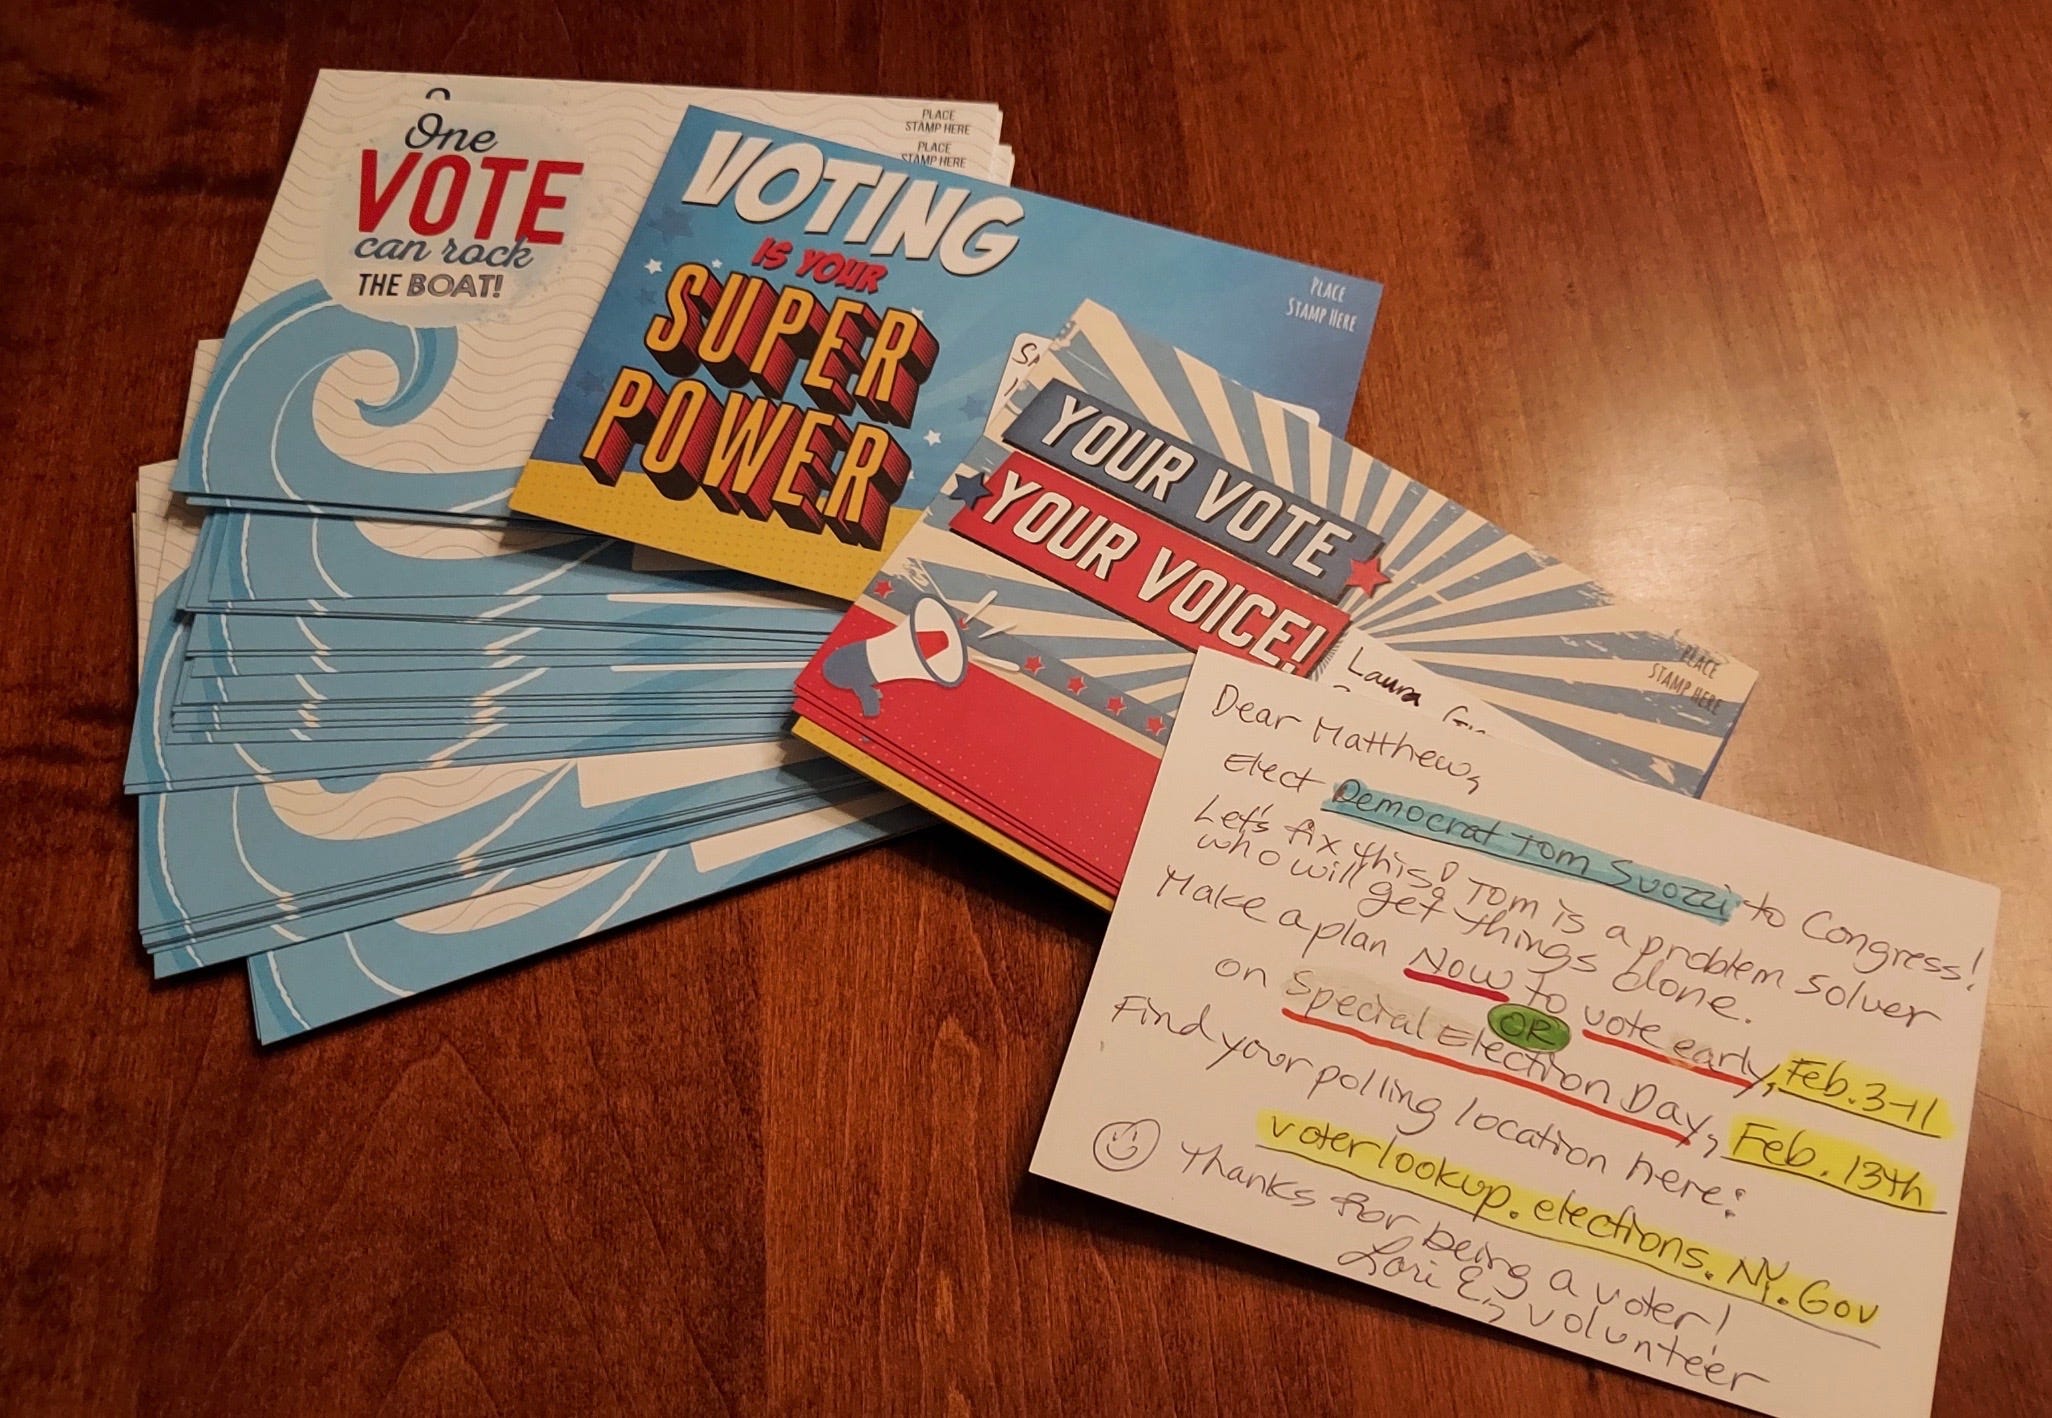 One
VOTE
can rock
THE BOAT!
PLACE
STAMP HERE
PLACE
STAMP HERE
VOTING
IS YOUR
SUPER
POWER
PLACE
STAMP HERE
YOUR VOTE
YOUR VOICE!
PLACE
STAMP HERE
Laura
Dear Matthew,
Elect Democrat Tom Suozzi to Congress!
Let's fix this! Tom is a problem solver
who will get things done.
Make a plan Now to vote early, Feb. 3-11
OR
on Special Election Day, Feb. 13th
Find your polling location here:
voterlookup.elections.NY.Gov
Thanks for being a voter!
Lori E, volunteer